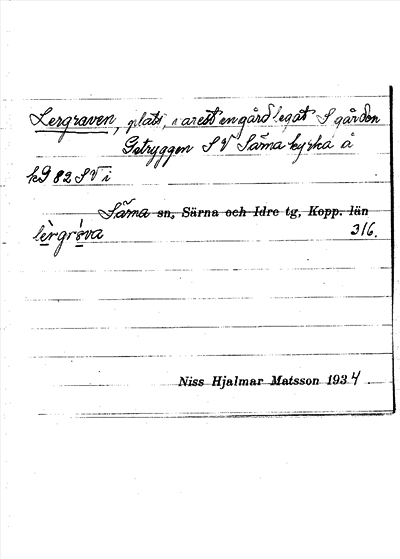 Lergraven, plats, varest en gård legat S gården
Getryggen SV Särna kyrka å
kg 82 SV i
Särna sn, Särna och Idre tg, Kopp. län
lèrgrá̱va 316.
Niss Hjalmar Matsson 1934